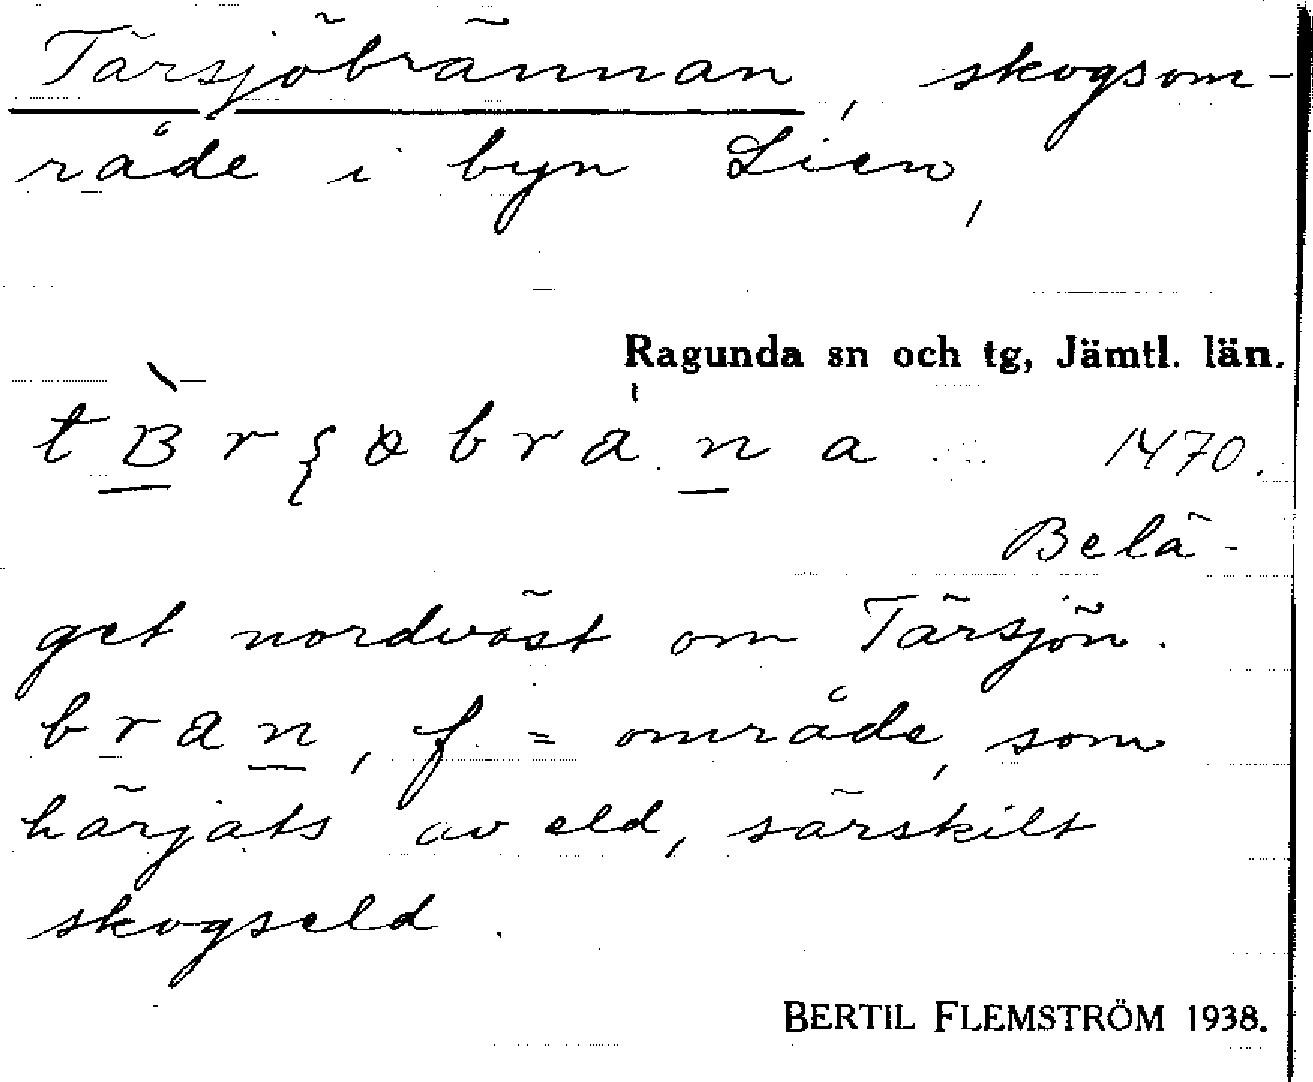 Tärsjöbrännan, skogsom-
råde i byn Lien,
Ragunda sn och tg, Jämtl. län.
1470.
Belä-
get nordväst om Tärsjön.
bran, f. = område, som
härjats av eld, särskilt
skogseld.
BERTIL FLEMSTRÖM 1938.